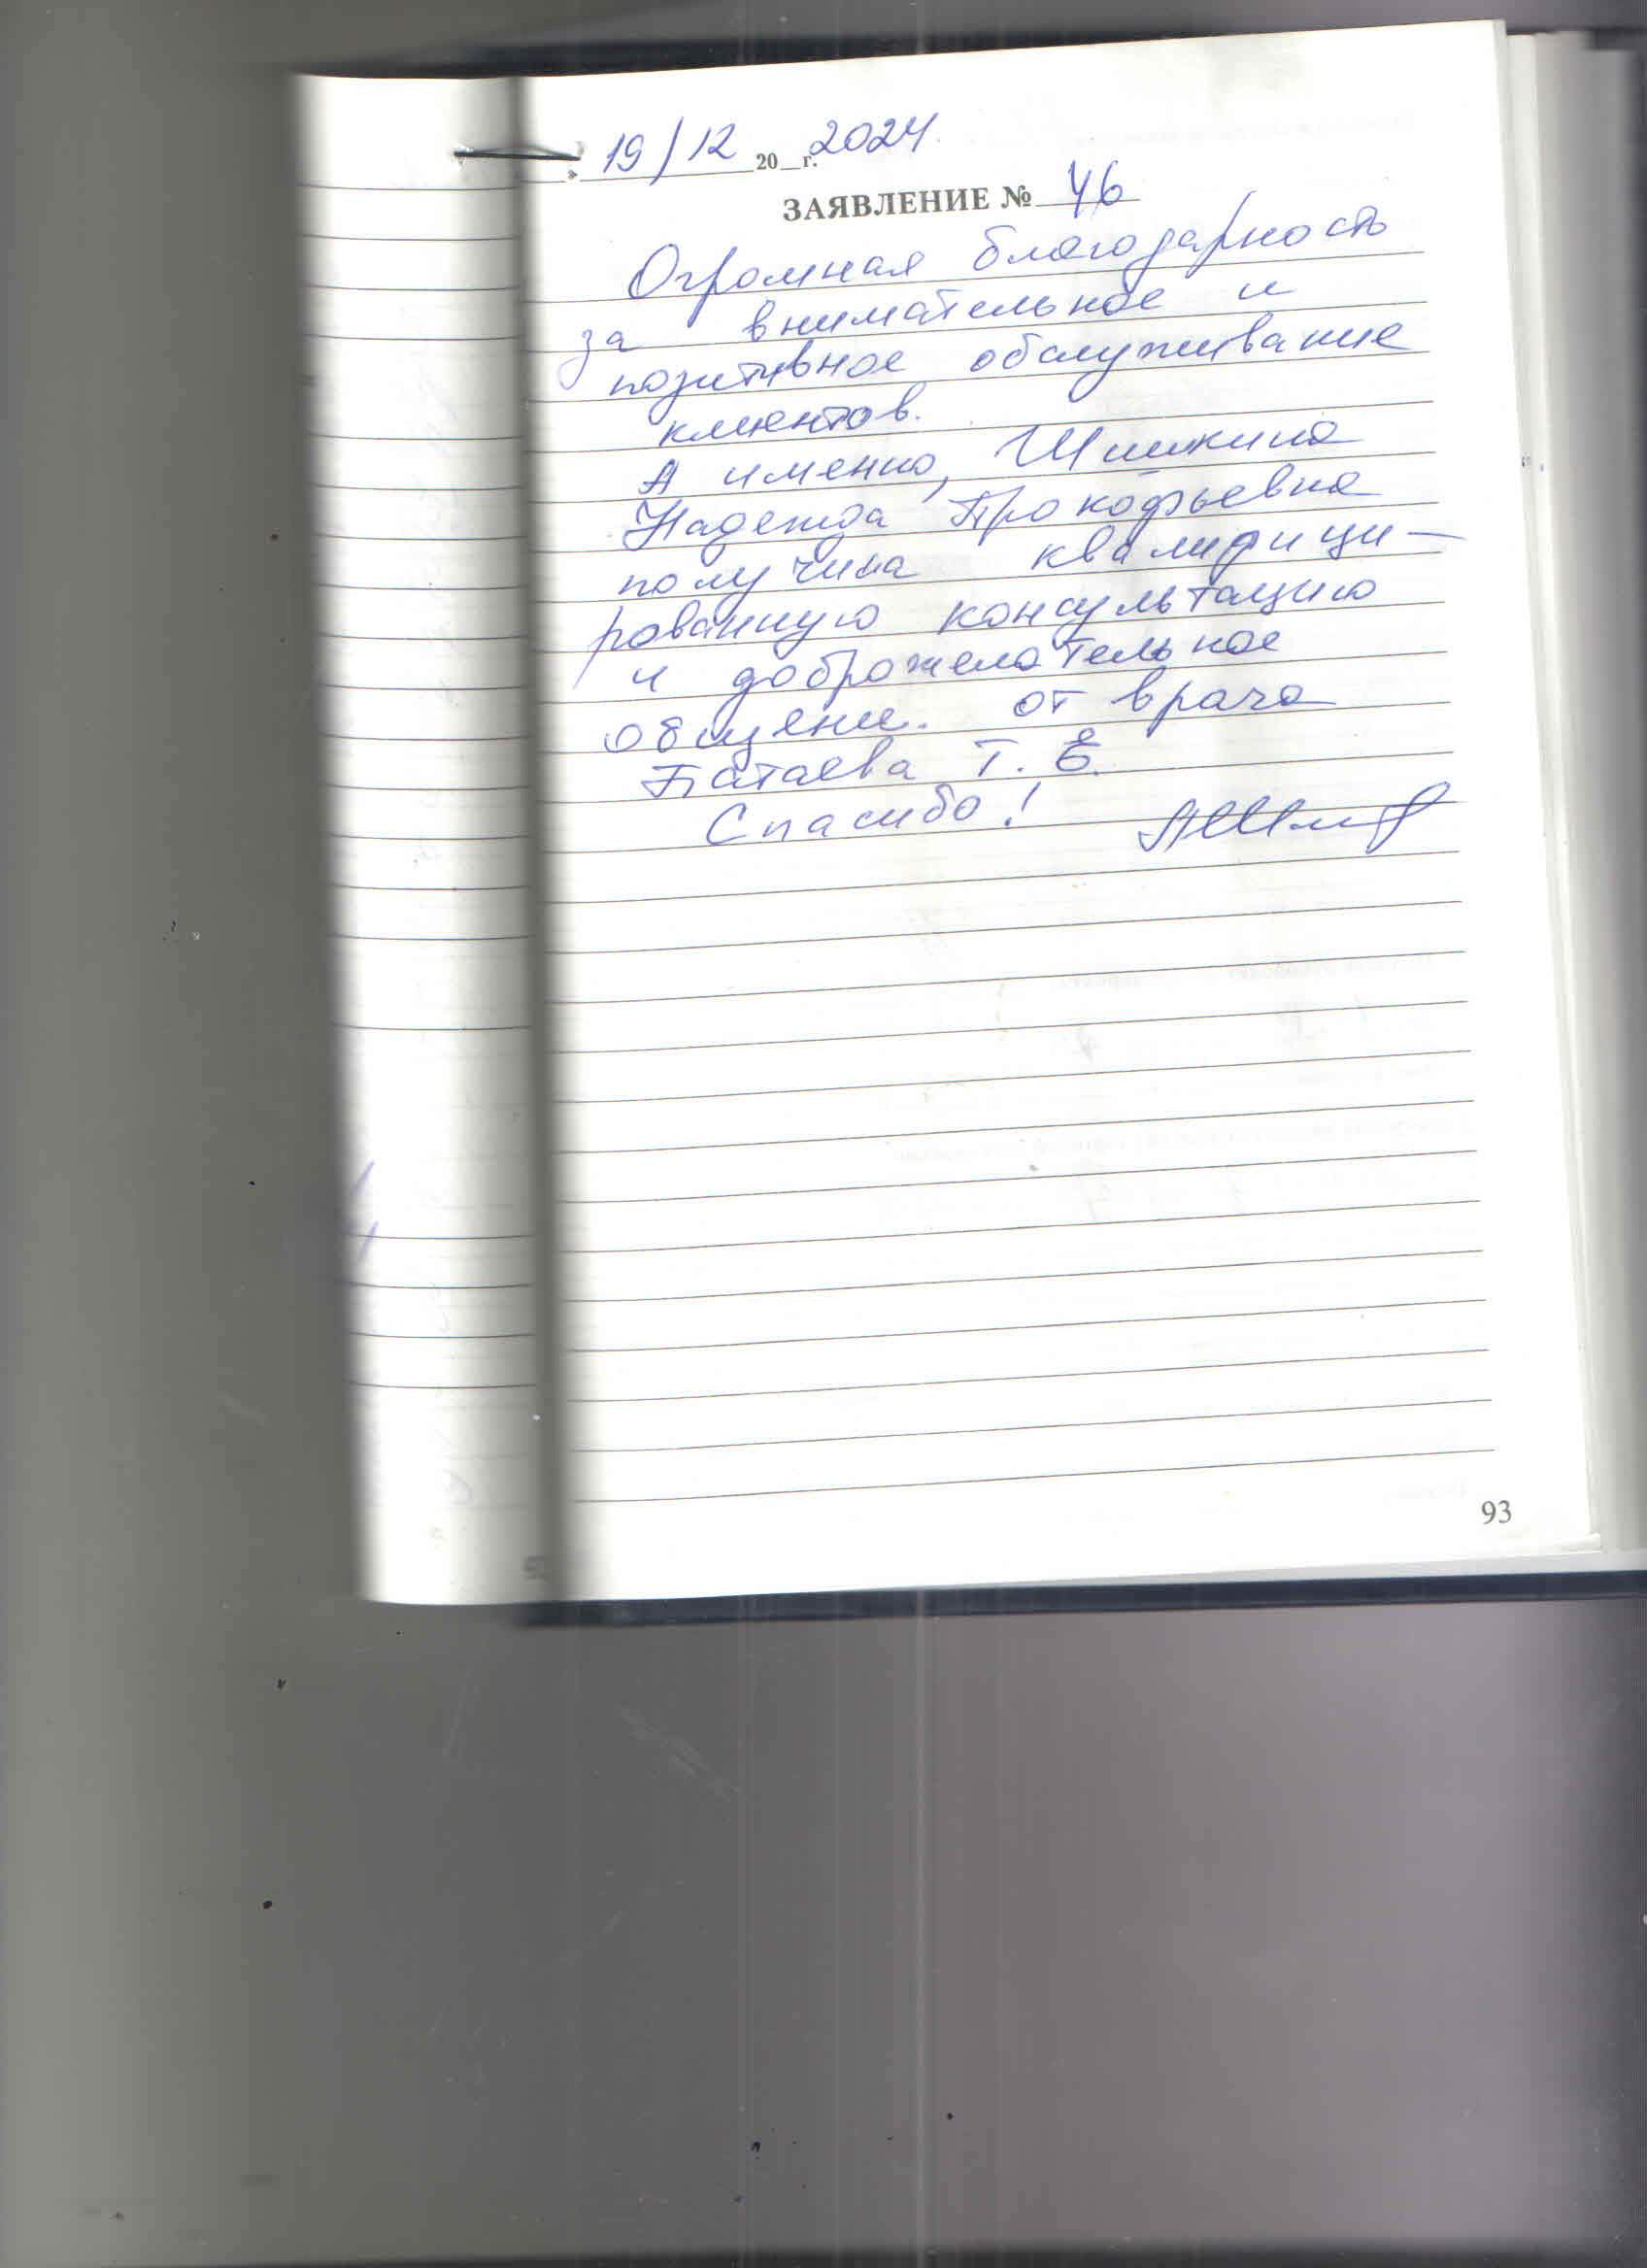 » 19/12 20__г. 2024.
ЗАЯВЛЕНИЕ № 46
Огромная благодарность
за внимательное и
позитивное обслуживание
клиентов.
А именно, Шишкина
Надежда Прокофьевна
получила квалифици-
рованную консультацию
и доброжелательное
общени. от врача
Батаева Т. Е.
Спасибо!
93